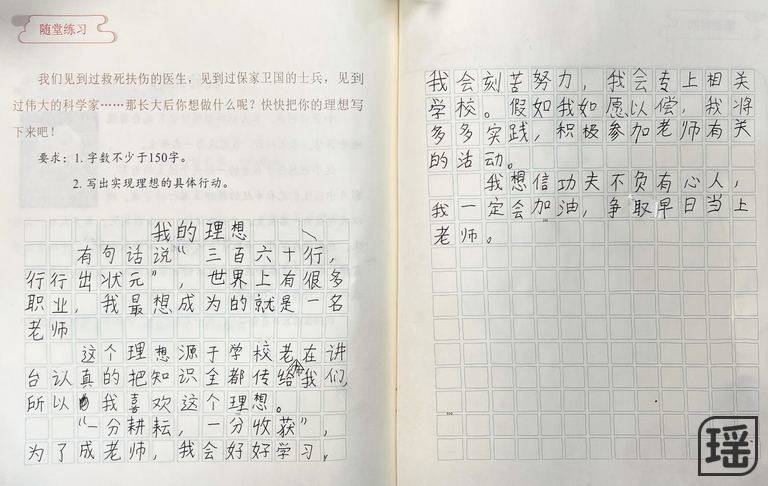 随堂练习
我们见到过救死扶伤的医生，见到过保家卫国的士兵，见到
过伟大的科学家……那长大后你想做什么呢？快快把你的理想写
下来吧！
要求：1. 字数不少于150字。
2. 写出实现理想的具体行动。
我的理想
有句话说“三百六十行，
行行出状元”，世界上有很多
职业，我最想成为的就是一名
老师
这个理想源于学校老在讲
师
台认真的把知识全都传给我们，
所以我喜欢这个理想。
“一分耕耘，一分收获”，
为了成老师，我会好好学习，
我会刻苦努力，我会专上相关
学校。假如我如愿以偿，我将
多多实践，积极参加老师有关
的活动。
我想信功夫不负有心人，
我一定会加油，争取早日当上
老师。
瑶